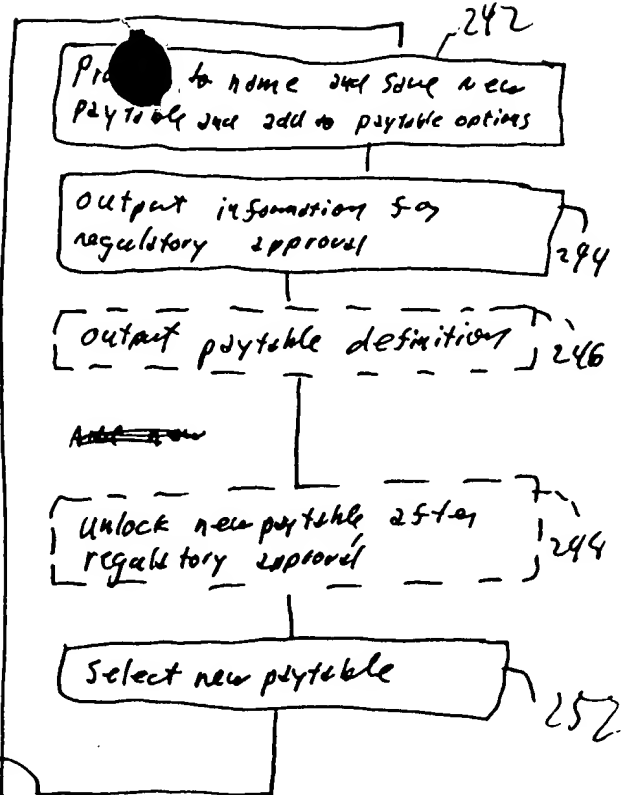 242
to name and save new
paytable and add to paytable options
output information for
regulatory approval
244
output paytable definition
246
unlock new paytable after
regulatory approval
248
Select new paytable
252